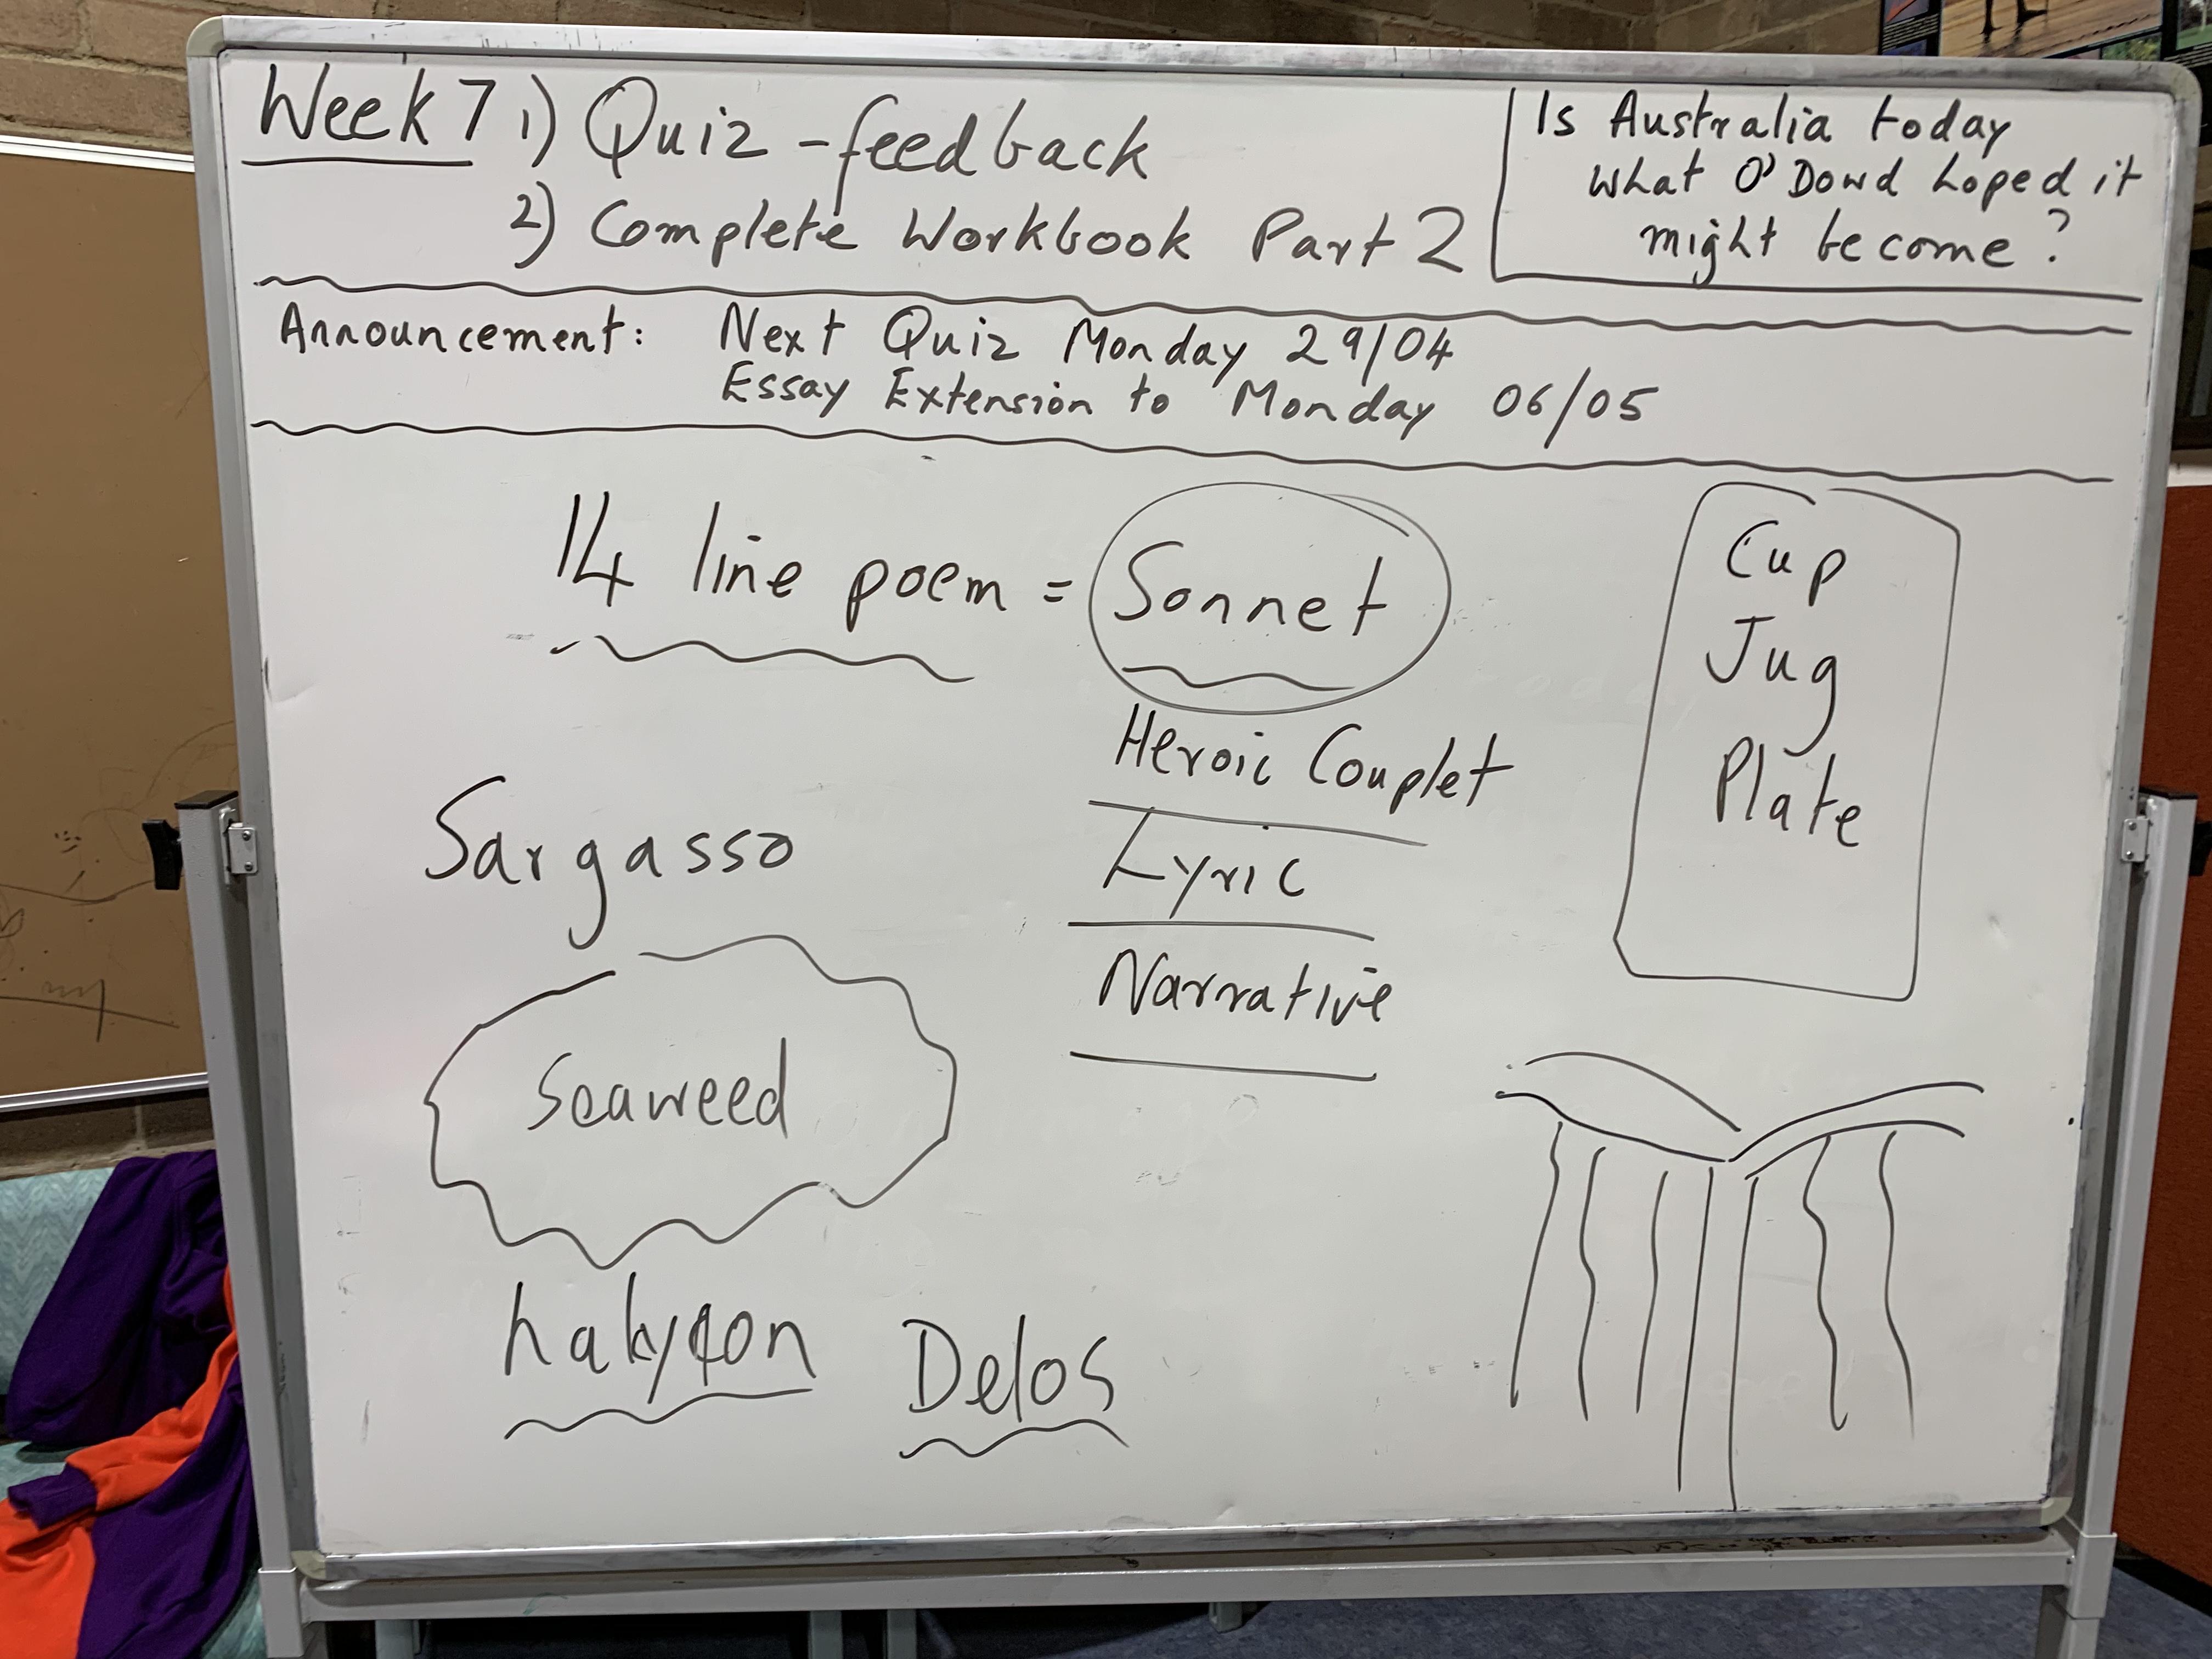 Week 7 1) Quiz - feedback
2) Complete Workbook Part 2
Is Australia today
what O'Dowd hoped it
might become?
Announcement: Next Quiz Monday 29/04
Essay Extension to Monday 06/05
14 line poem = Sonnet
Heroic Couplet
Lyric
Narrative
Cup
Jug
Plate
Sargasso
Seaweed
Delos